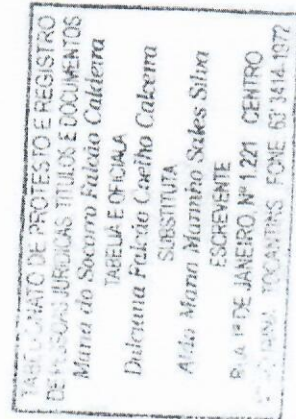 TABELIONATO DE PROTESTO E REGISTRO
DE PESSOAS JURÍDICAS, TÍTULOS E DOCUMENTOS
Maria do Socorro Falcão Caldeira
TABELIÃ E OFICIALA
Falcão Coelho Caldeira
SUBSTITUTA
Alda Maria Marinho Sales Silva
ESCREVENTE
RUA 1º DE JANEIRO, Nº 1.221 CENTRO
TOCANTINS FONE 63 3414-1972